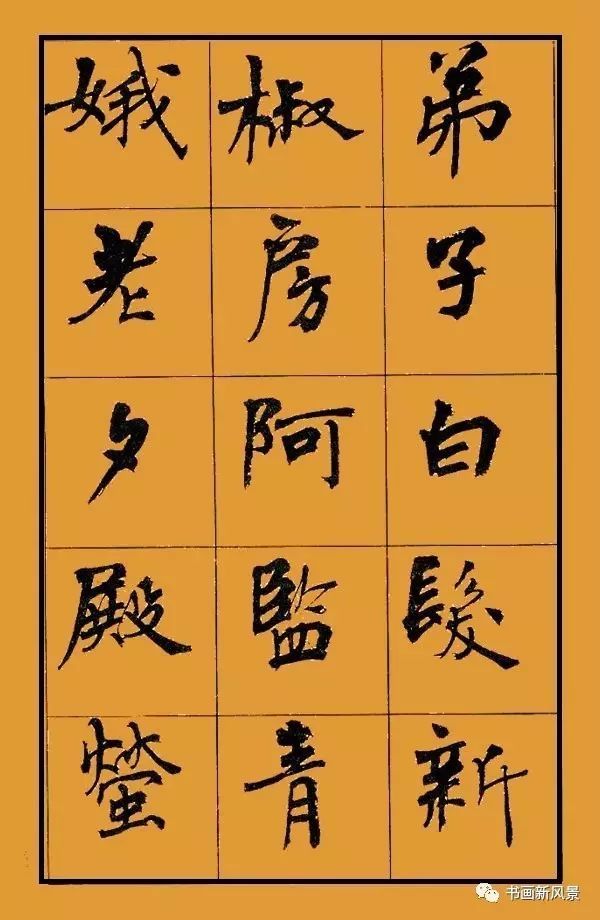 弟子白髮新
椒房阿監青
娥老夕殿螢
书画新风景